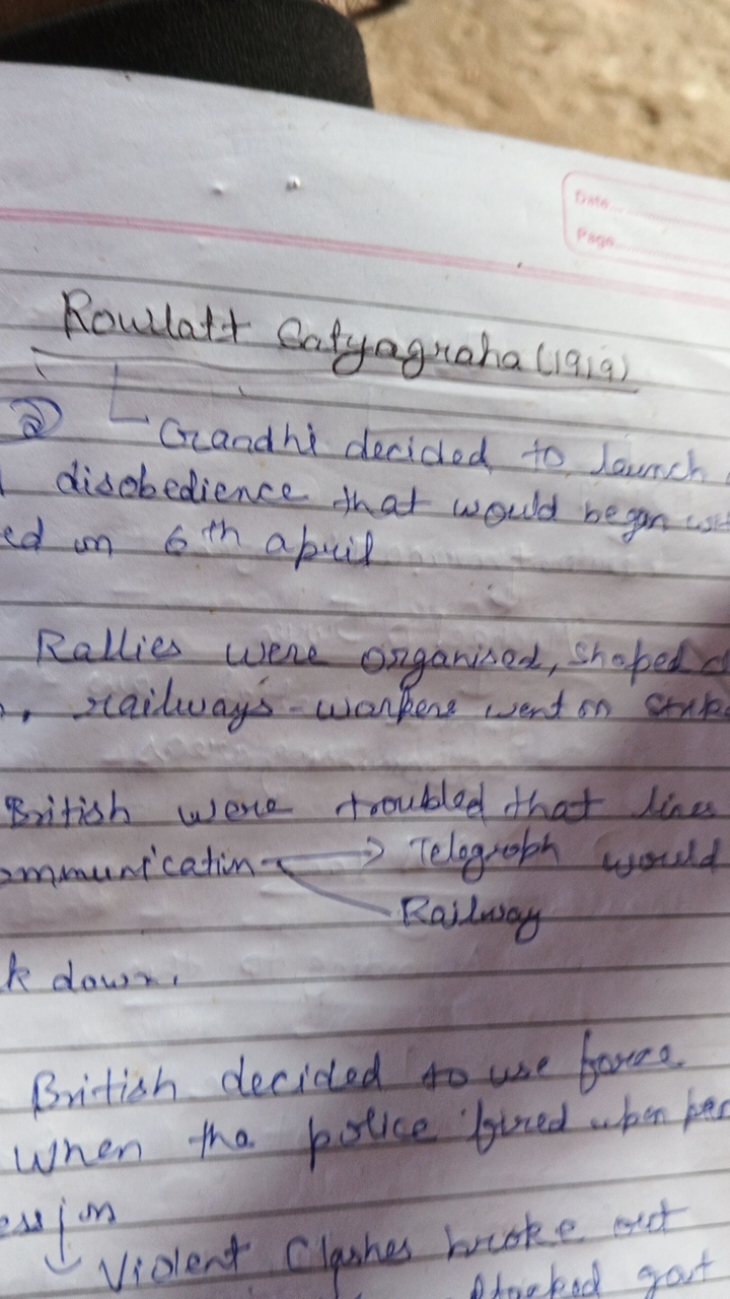 Date
Page
Rowllatt Satyagraha (1919)
② Gandhi decided to launch
disobedience that would began
ed on 6th april
Rallies were organised, shoped
railways - workers went on
British were troubled that lines
ommunication → Telegraph would
Railway
k down.
British decided to use force.
When the police fired upon
ession
Violent Clashes broke out
govt